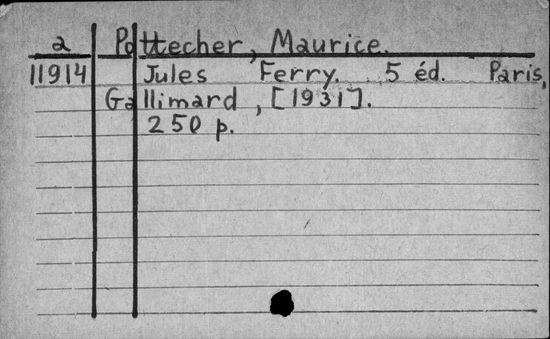 a Pottecher, Maurice.
11914 Jules Ferry. 5 éd. Paris,
Gallimard, [1931].
250 p.